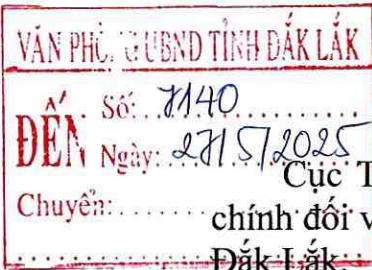 VĂN PHÒNG UBND TỈNH ĐẮK LẮK
ĐẾN
Số: 7140
Ngày: 27/5/2025
Cục T
Chuyển:
chính đối v
Đắk Lắk